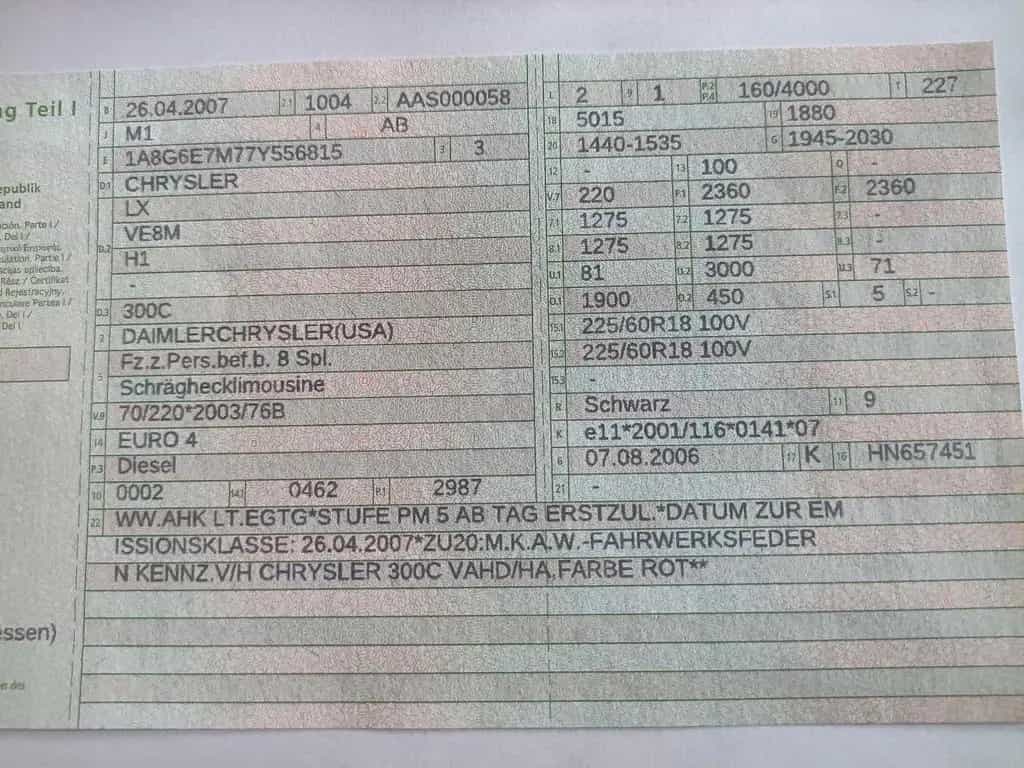 ng Teil I
epublik
and
B 26.04.2007 2.1 1004 2.2 AAS000058
J M1 4 AB
E 1A8G6E7M77Y556815 3 3
D.1 CHRYSLER
LX
D.2 VE8M
H1
-
D.3 300C
2 DAIMLERCHRYSLER(USA)
5 Fz.z.Pers.bef.b. 8 Spl.
Schräghecklimousine
V.9 70/220*2003/76B
14 EURO 4
P.3 Diesel
10 0002 14.1 0462 P.1 2987
L 2 9 1 P.2 P.4 160/4000 T 227
18 5015 19 1880
20 1440-1535 G 1945-2030
12 - 13 100 Q -
V.7 220 F.1 2360 F.2 2360
7.1 1275 7.2 1275 7.3 -
8.1 1275 8.2 1275 8.3 -
U.1 81 U.2 3000 U.3 71
O.1 1900 O.2 450 S.1 5 S.2 -
15.1 225/60R18 100V
15.2 225/60R18 100V
15.3 -
R Schwarz 11 9
K e11*2001/116*0141*07
6 07.08.2006 17 K 16 HN657451
21 -
22 WW.AHK LT.EGTG*STUFE PM 5 AB TAG ERSTZUL.*DATUM ZUR EM
ISSIONSKLASSE: 26.04.2007*ZU20:M.K.A.W.-FAHRWERKSFEDER
N KENNZ.V/H CHRYSLER 300C VAHD/HA,FARBE ROT**
essen)